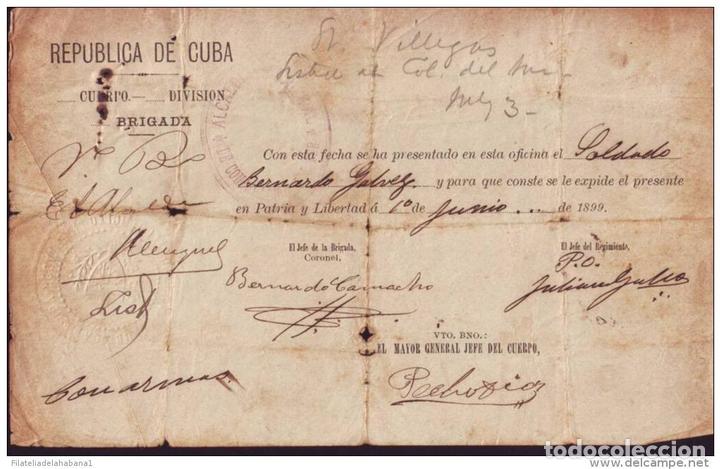 REPUBLICA DE CUBA
CUERPO. DIVISION
BRIGADA
Villegas
Col. del
3
Vº Bº
El Alcalde
List
Con armas.
ALCAL
Con esta fecha se ha presentado en esta oficina el Soldado
Bernardo Galvez y para que conste se le expide el presente
en Patria y Libertad á 1º de Junio de 1899.
El Jefe de la Brigada,
Coronel,
Bernardo Camacho
El Jefe del Regimiento,
P.O.
Julian Gallo
VTO. BNO.:
EL MAYOR GENERAL JEFE DEL CUERPO,
Pedro Diaz
Filateliadelahabana1
todocoleccion
todocoleccion.net